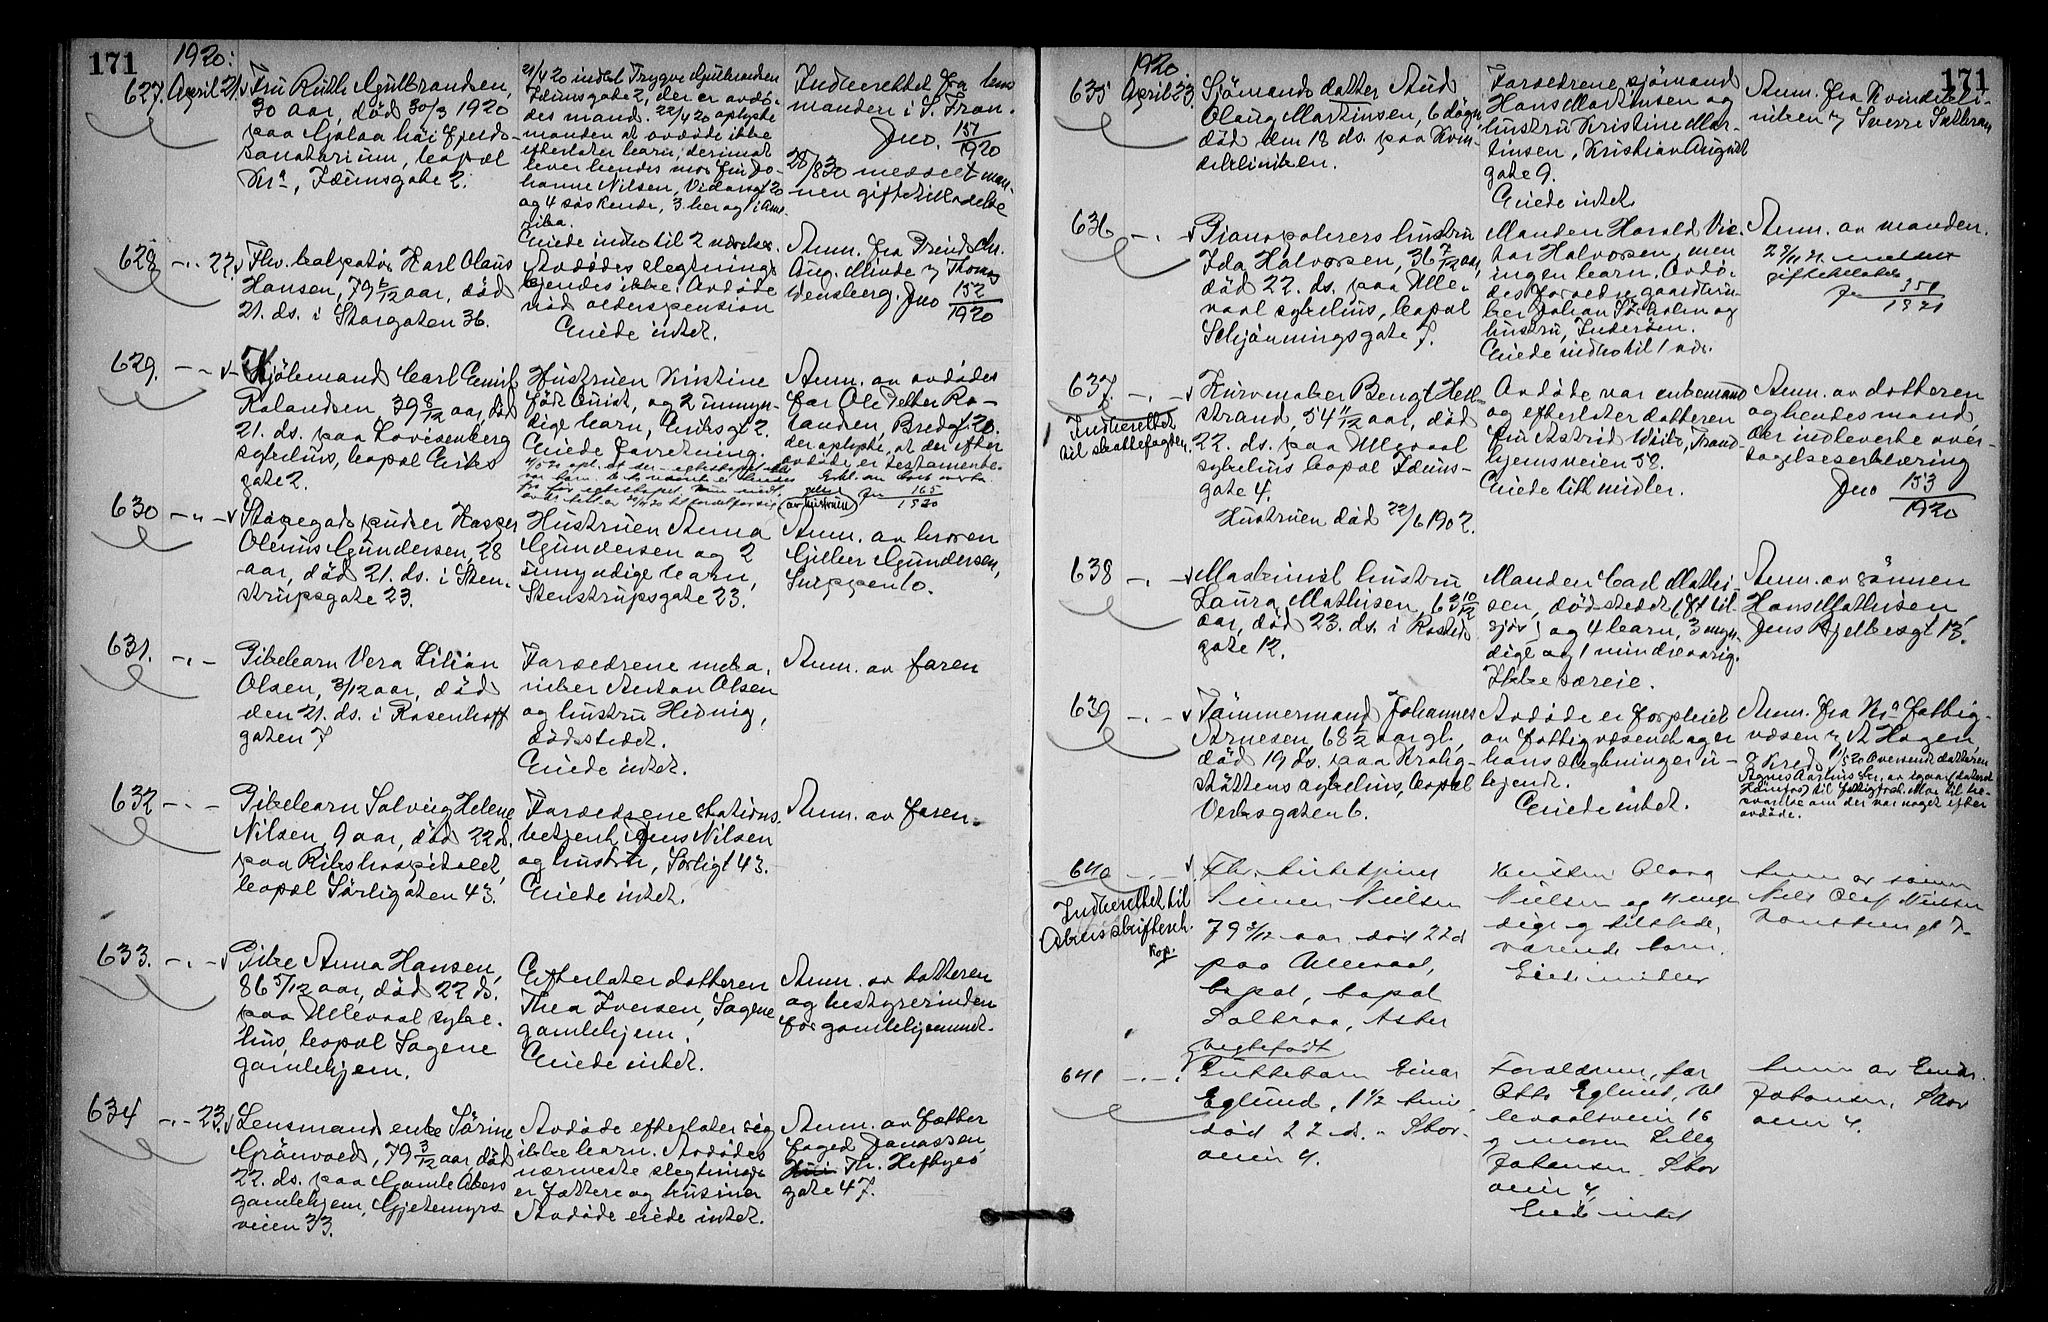 171
1920:
627. April 21. Fru Ruth Gulbrandsen,
30 aar, død 30/3 1920
paa Golaa høifjelds-
sanatorium, bopæl
Kra, Iduns gate 2.
21/4 20 indl. Trygve Gulbrandsen
Idunsgate 2, der er avdø-
des mand. 22/4 20 oplyste
manden at avdøde ikke
efterlater barn; derimot
lever hendes mor fru Jo-
hanne Nilsen, Vidarsgt 20
og 4 søskende, 3 her og 1 i Ame-
rika.
Eiede indbo til 2 værelser.
Indberettet fra lens
manden i S. Fron.
Jno. 151/1920
28/8 30 meddelt man-
nen gifteitilladelse
628 -"- 22. Fhv. kalfatør Karl Olaus
Hansen, 79 6/12 aar, død
21. ds. i Storgaten 36.
Avdødes slegtninge
kjendes ikke. Avdøde
nød alderspension
Eiede intet.
Anm. fra Chr.
Aug. Minde v/ Thomas
Wensberg. Jno 152/1920
629. -"- Kjølemand Carl Emil
Rolandsen, 39 8/12 aar, død
21. ds. paa Lovisenberg
sykehus, bopæl Eriks
gate 2.
Hustruen Kristine
født Quist, og 2 umyn-
dige barn, Eriksgt 2.
Eiede forretning.
Anm. av avdødes
far Ole Petter Ro-
landsen, Bredgt 20.
der oplyste, at der efter
avdøde er testamente.
(av hustruen) Jno 165/1920
630 -"- Støpegodspudser Kasper
Olenius Gundersen, 28
aar, død 21. ds. i Sten-
strupsgate 23.
Hustruen Anna
Gundersen og 2
umyndige barn,
Stenstrupsgate 23.
Anm. av broren
Gilbert Gundersen,
Snippen 10.
631. -"- Pikebarn Vera Lilian
Olsen, 3/12 aar, død
den 21. ds. i Rosenhoff
gaten 7
Forældrene meka-
niker Anton Olsen
og hustru Hedvig,
dødsstedet.
Eiede intet.
Anm. av faren
632 -"- Pikebarn Solveig Helene
Nilsen, 9 aar, død 22 d.
paa Rikshospitalet,
bopæl Sørligaten 43.
Forældrene stations-
betjent Jens Nilsen
og hustru, Sørligt 43.
Eiede intet.
Anm. av faren.
633. -"- Pike Anna Hansen,
86 5/12 aar, død 22 ds.
paa Ullevaal syke-
hus, bopæl Sagene
gamlehjem.
Efterlater datteren
Thea Iversen, Sagene
gamlehjem.
Eiede intet.
Anm. av datteren
og bestyrerinden
for gamlehjemmet.
634 -"- 23. Lensmands enke Sørine
Grønvold, 79 3/12 aar, død
22. ds. paa Gamle Akers
gamlehjem, Gjetemyrs-
veien 33.
Avdøde efterlater sig
ikke barn. Avdødes
nærmeste slegtninge
er fættere og kusiner
Avdøde eiede intet.
Anm. av fætter
foged Jonassen
Th. Heftyes
gate 47.
171
1920
635 April 23. Sjømands datter Aud
Olaug Martinsen, 6 døgn
død den 18 ds. paa Kvin-
deklinikken.
Forældrene sjømand
Hans Martinsen og
hustru Kristine Mar-
tinsen, Kristian August
gate 9.
Eiede intet
Anm. fra Kvindekli-
nikken v/ Sverre
636 -"- Pianopolerers hustru
Ida Halvorsen, 36 7/12 aar,
død 22. ds. paa Ulle-
vaal sykehus, bopæl
Schjønningsgate 7.
Manden Harald Vic-
tor Halvorsen, men
ingen barn. Avdø-
des forældre gaardbru-
ker Johan Fr. Holm og
hustru, Inderøen.
Eiede indbo til 1 vær.
Anm. av manden.
28/11 21 meddelt
giftetilladelse
Jno 351/1921
637. -"- Kurvmaker Bengt Hell-
strand, 54 11/12 aar, død
22. ds. paa Ullevaal
sykehus bopæl Iduns-
gate 4.
Hustruen død 22/6 1902.
Indberettet
til skattefogden.
Avdøde var enkemand
og efterlater datteren
fru Astrid Wiik, Trond
hjemsveien 59.
Eiede litt midler.
Anm. av datteren
og hendes mand,
der indleverte over-
tagelseserklæring
Jno 153/1920
638 -"- Maskinist hustru
Laura Mathisen, 63 10/12
aar, død 23. ds. i Rosteds
gate 12.
Manden Carl Mathi-
sen, dødsstedet (pt til-
sjøs) og 4 barn, 3 myn-
dige og 1 mindreaarig.
Ikke særeie.
Anm. av sønnen
Hans Mathisen
Jens Bjelkesgt 13.
639 -"- Tømmermand Johannes
Arnesen, 68 1/2 aar gl.,
død 19 ds. paa Krohg-
støttens sykehus, bopæl
Verksgaten 6.
Avdøde er forpleiet
av fattigvæsenet og er
hans slegtninger u-
kjendt.
Eiede intet.
Anm. fra Kra fattig-
væsen v/ A Hagen
8 Kreds 1/5 20 Oversendt datteren
Agnes Aarhus br. av igaar dateret
Hamar til fattigforst. Moe til be-
svarelse om der var noget efter
avdøde.
640 -"- Fhv. kirketjener
Simen Nielsen
79 3/12 aar død 22 d
paa Ullevaal,
bopæl, bopæl
Solbraa, Asker
Indberettet til
Akers skifteret.
Kop.
Hustru Olava
Nielsen og 4 myn-
dige og tilstede-
værende barn.
Eiede midler
Anm. av sønnen
Nils Olaf Nielsen
641 -"- uegtefødt
Guttebarn Einar
Eglund, 1 1/2 time,
død 22 d. - Skov-
veien 4.
Forældrene, far
Otto Eglund,
16
og moren Lilly
Johansen Skov
veien 4,
Eiede intet
Anm. av Einar
Johansen, Skov
veien 4.